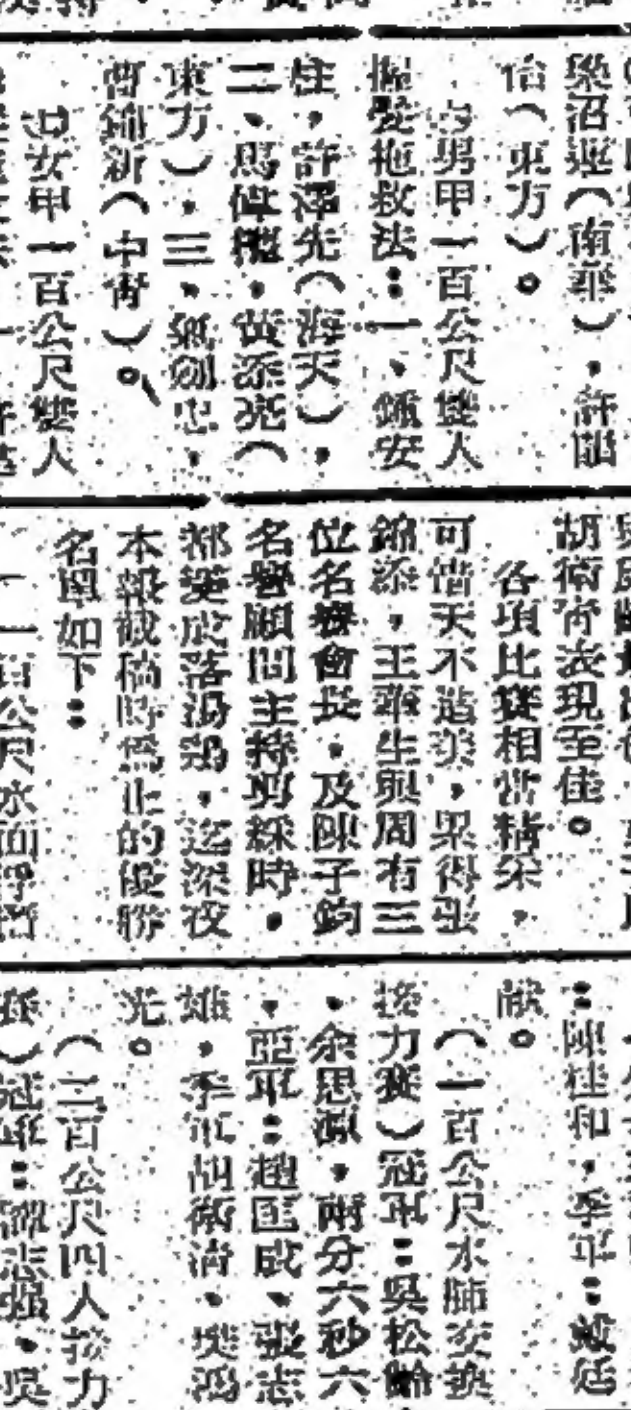 樂沼運(南華),許
信(東方)。
男甲一百公尺雙人
握髮拖救法:一、鍾安
柱,許澤先(海天),
二、馬偉權,黃添亮(
東方),三、
曾錦新(中青)。
女甲一百公尺雙人
胡衛青表現至佳。
各項比賽相當精采,
可惜天不造美,累得張
錦添,王華生與周有三
位名譽會長,及陳子鈞
名譽顧問主持剪綵時,
都變成落湯鷄,迄深夜
本報截稿時為止的優勝
名單如下:
(一百公尺水面
:陳桂和,季軍:
猷。
(一百公尺水肺交換
接力賽)冠軍:吳松齡
,余思源,兩分六秒六
,亞軍:趙匡成、張志
雄,季軍胡衛清、 鴻
光。
(二百公尺四人接力
)冠軍:譚志強、吳